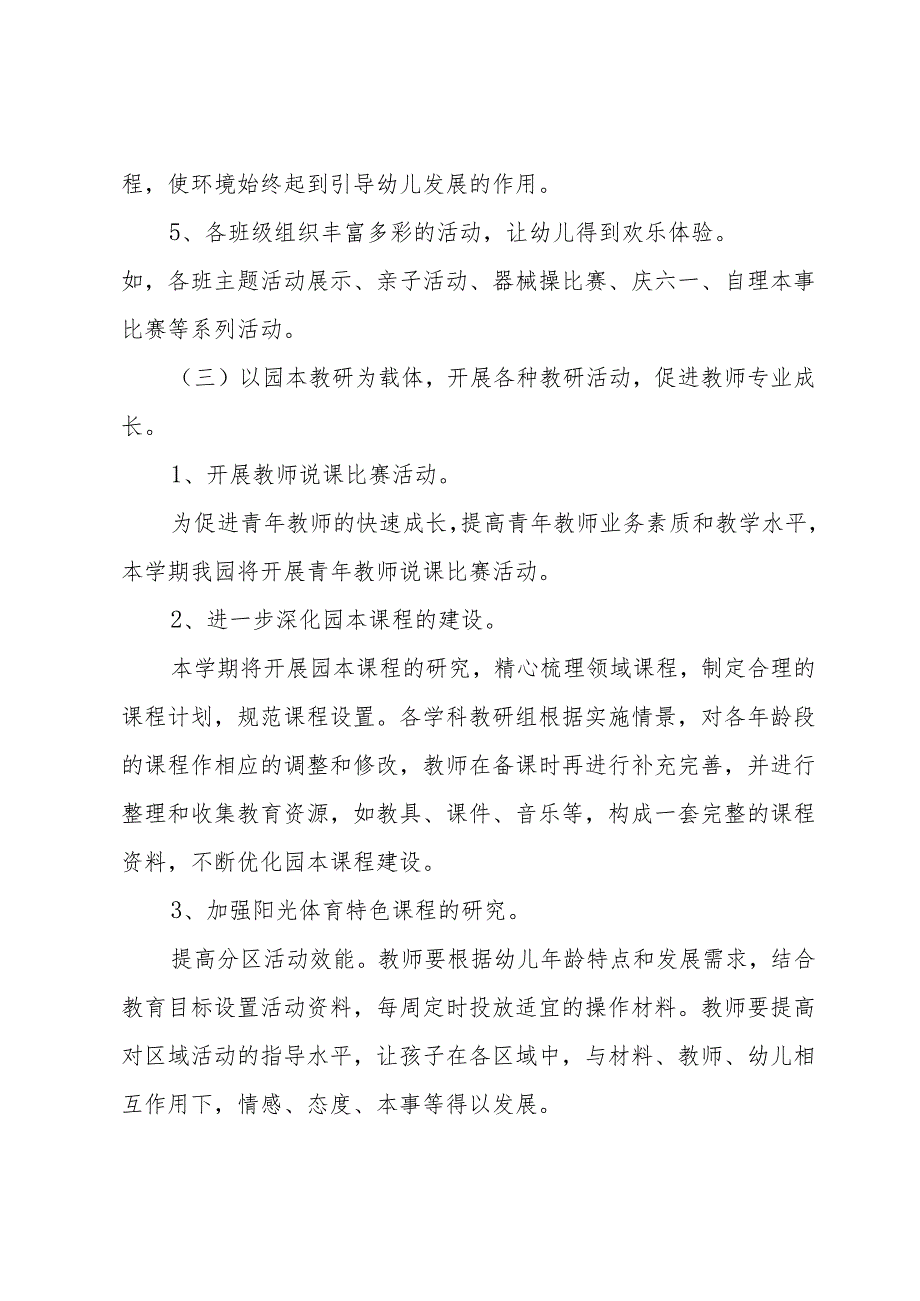 程，使环境始终起到引导幼儿发展的作用。
5、各班级组织丰富多彩的活动，让幼儿得到欢乐体验。
如，各班主题活动展示、亲子活动、器械操比赛、庆六一、自理本事
比赛等系列活动。
（三）以园本教研为载体，开展各种教研活动，促进教师专业成
长。
1、开展教师说课比赛活动。
为促进青年教师的快速成长，提高青年教师业务素质和教学水平，
本学期我园将开展青年教师说课比赛活动。
2、进一步深化园本课程的建设。
本学期将开展园本课程的研究，精心梳理领域课程，制定合理的
课程计划，规范课程设置。各学科教研组根据实施情景，对各年龄段
的课程作相应的调整和修改，教师在备课时再进行补充完善，并进行
整理和收集教育资源，如教具、课件、音乐等，构成一套完整的课程
资料，不断优化园本课程建设。
3、加强阳光体育特色课程的研究。
提高分区活动效能。教师要根据幼儿年龄特点和发展需求，结合
教育目标设置活动资料，每周定时投放适宜的操作材料。教师要提高
对区域活动的指导水平，让孩子在各区域中，与材料、教师、幼儿相
互作用下，情感、态度、本事等得以发展。